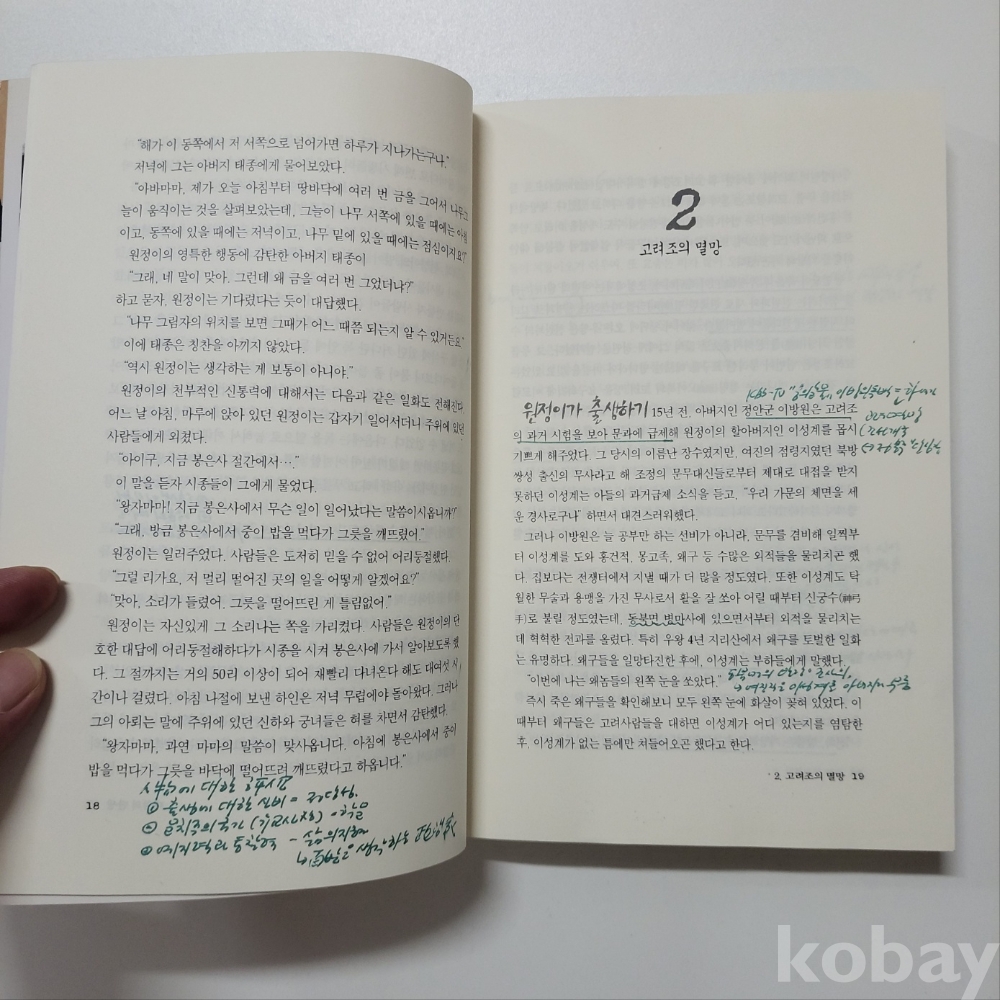 "해가 이 동쪽에서 저 서쪽으로 넘어가면 하루가 지나가는구나."
저녁에 그는 아버지 태종에게 물어보았다.
"아바마마, 제가 오늘 아침부터 땅바닥에 여러 번 금을 그어서 나무그
늘이 움직이는 것을 살펴보았는데, 그늘이 나무 서쪽에 있을 때에는 아침
이고, 동쪽에 있을 때에는 저녁이고, 나무 밑에 있을 때에는 점심이지요?"
원정이의 영특한 행동에 감탄한 아버지 태종이
"그래, 네 말이 맞아. 그런데 왜 금을 여러 번 그었더냐?"
하고 묻자, 원정이는 기다렸다는 듯이 대답했다.
"나무 그림자의 위치를 보면 그때가 어느 때쯤 되는지 알 수 있거든요."
이에 태종은 칭찬을 아끼지 않았다.
"역시 원정이는 생각하는 게 보통이 아니야."
원정이의 천부적인 신통력에 대해서는 다음과 같은 일화도 전해진다.
어느 날 아침, 마루에 앉아 있던 원정이는 갑자기 일어서더니 주위에 있던
사람들에게 외쳤다.
"아이구, 지금 봉은사 절간에서…."
이 말을 듣자 시종들이 그에게 물었다.
"왕자마마! 지금 봉은사에서 무슨 일이 일어났다는 말씀이시옵니까?"
"그래, 방금 봉은사에서 중이 밥을 먹다가 그릇을 깨뜨렸어."
원정이는 일러주었다. 사람들은 도저히 믿을 수 없어 어리둥절했다.
"그럴 리가요, 저 멀리 떨어진 곳의 일을 어떻게 알겠어요?"
"맞아, 소리가 들렸어. 그릇을 떨어뜨린 게 틀림없어."
원정이는 자신있게 그 소리나는 쪽을 가리켰다. 사람들은 원정이의 단
호한 대답에 어리둥절해하다가 시종을 시켜 봉은사에 가서 알아보도록 했
다. 그 절까지는 거의 50리 이상이 되어 재빨리 다녀온다 해도 대여섯 시
간이나 걸렸다. 아침 나절에 보낸 하인은 저녁 무렵에야 돌아왔다. 그러나
그의 아뢰는 말에 주위에 있던 신하와 궁녀들은 혀를 차면서 감탄했다.
"왕자마마, 과연 마마의 말씀이 맞사옵니다. 아침에 봉은사에서 중이
밥을 먹다가 그릇을 바닥에 떨어뜨려 깨뜨렸다고 하옵니다."
에 대한
18
출생에 대한 신비 =
통찰력 - 삶의지혜
생각하는
2
고려조의 멸망
KBS-TV
원정이가 출생하기 15년 전, 아버지인 정안군 이방원은 고려조
의 과거 시험을 보아 문과에 급제해 원정이의 할아버지인 이성계를 몹시
기쁘게 해주었다. 그 당시의 이름난 장수였지만, 여진의 점령지였던 북방
쌍성 출신의 무사라고 해 조정의 문무대신들로부터 제대로 대접을 받지
못하던 이성계는 아들의 과거급제 소식을 듣고, "우리 가문의 체면을 세
운 경사로구나" 하면서 대견스러워했다.
그러나 이방원은 늘 공부만 하는 선비가 아니라, 문무를 겸비해 일찍부
터 이성계를 도와 홍건적, 몽고족, 왜구 등 수많은 외적들을 물리치곤 했
다. 집보다는 전쟁터에서 지낼 때가 더 많을 정도였다. 또한 이성계도 탁
월한 무술과 용맹을 가진 무사로서 활을 잘 쏘아 어릴 때부터 신궁수(神弓
手)로 불릴 정도였는데, 동북면 병마사에 있으면서부터 외적을 물리치는
데 혁혁한 전과를 올렸다. 특히 우왕 4년 지리산에서 왜구를 토벌한 일화
는 유명하다. 왜구들을 일망타진한 후에, 이성계는 부하들에게 말했다.
"이번에 나는 왜놈들의 왼쪽 눈을 쏘았다."
즉시 죽은 왜구들을 확인해보니 모두 왼쪽 눈에 화살이 꽂혀 있었다. 이
때부터 왜구들은 고려사람들을 대하면 이성계가 어디 있는지를 염탐한
후, 이성계가 없는 틈에만 쳐들어오곤 했다고 한다.
2. 고려조의 멸망 19
kobay